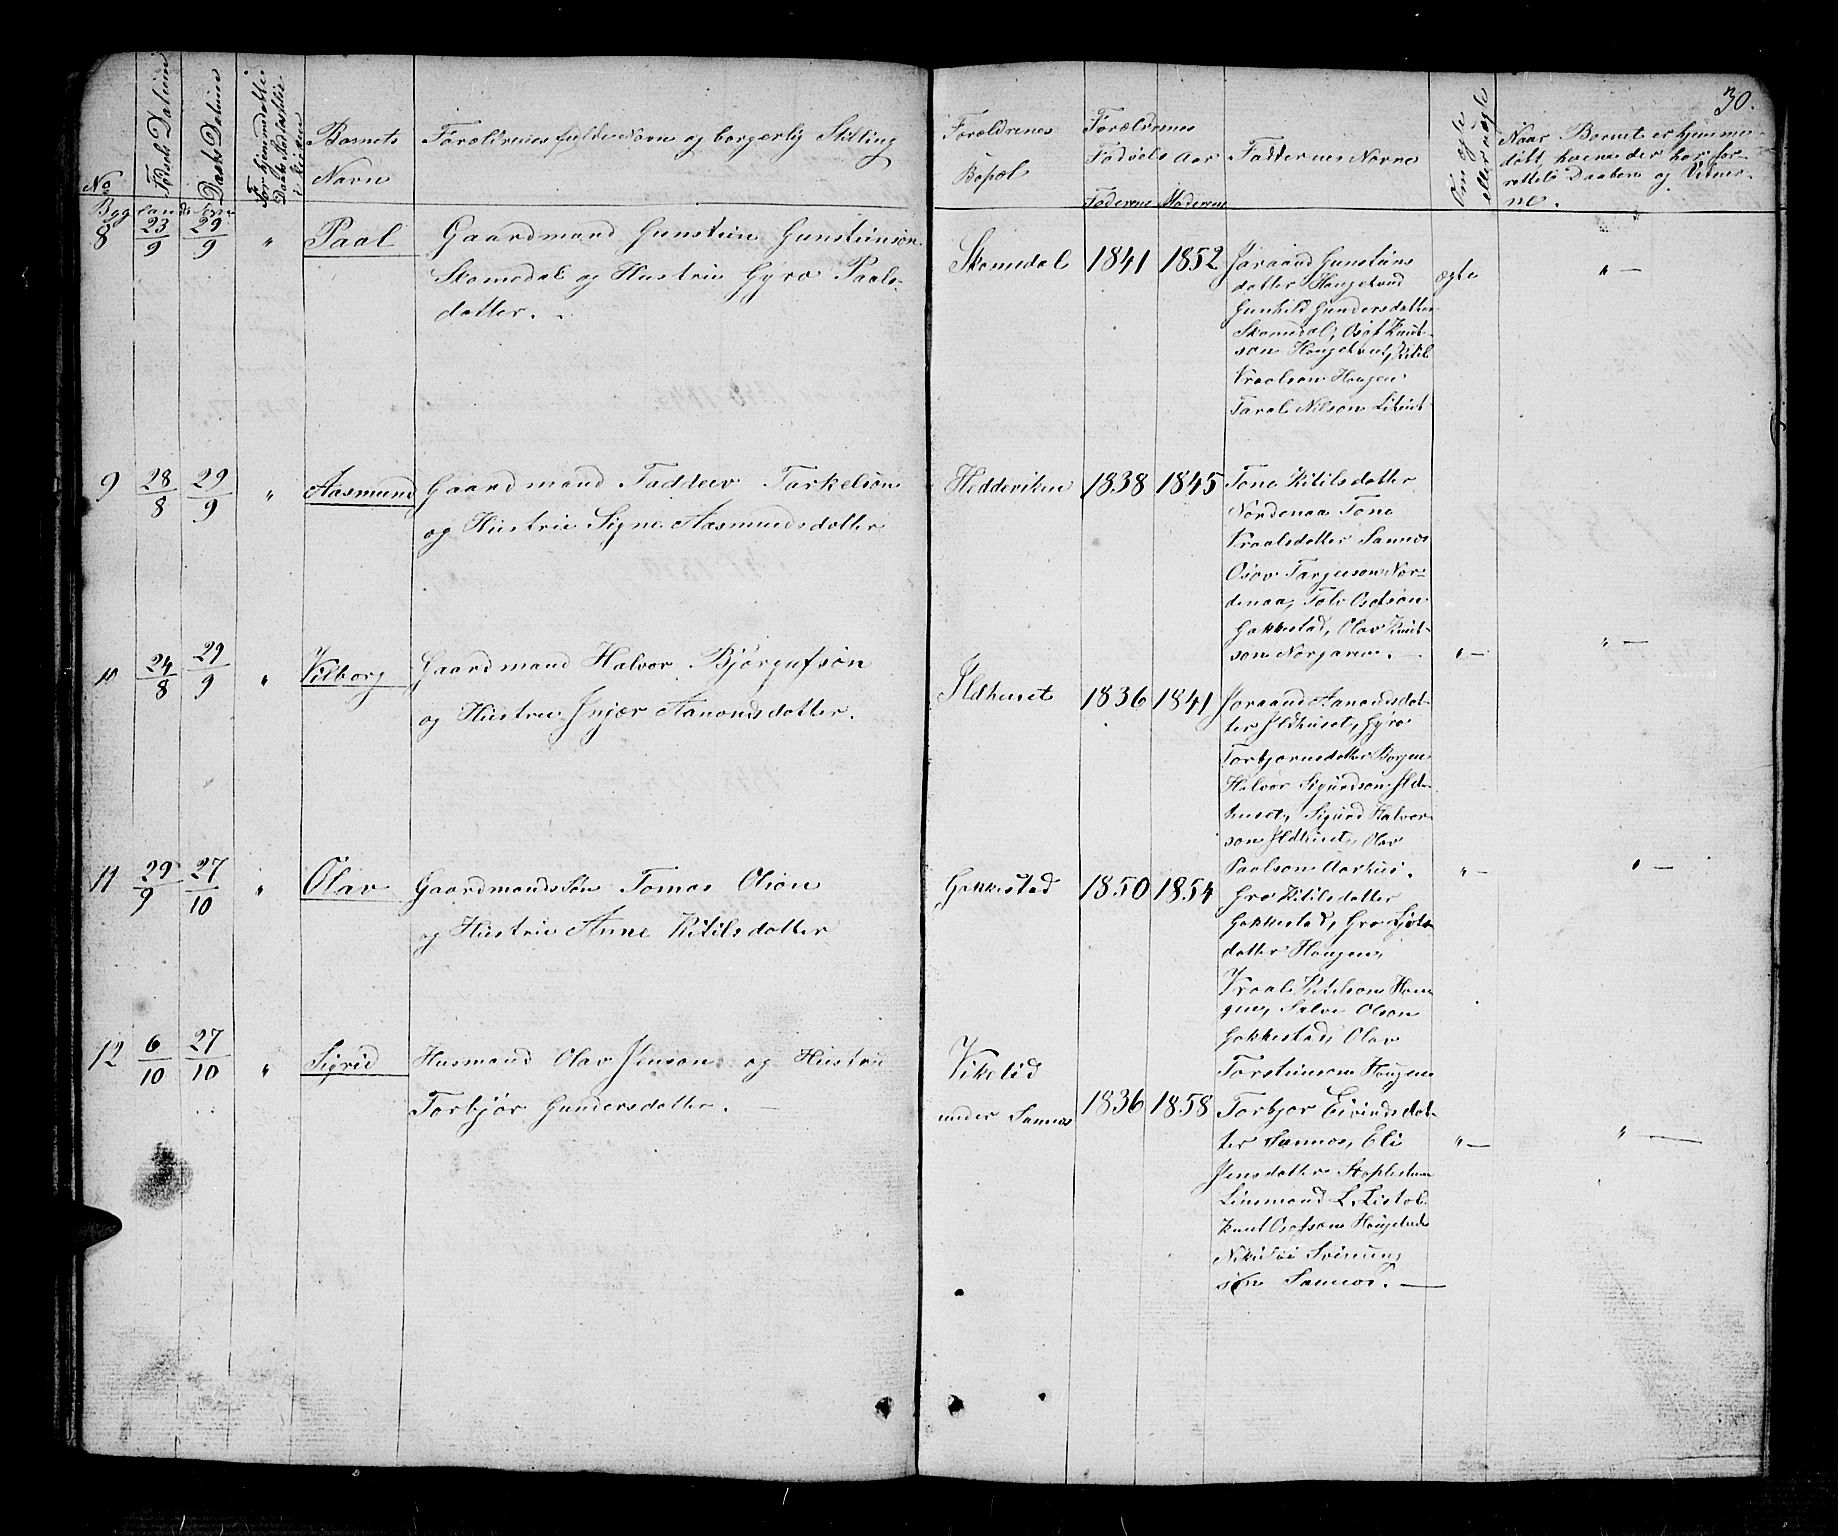 30.
No
Fødsels Datum
Daabs Datum
Om hjemmedøbt
Daabs Stadfæstelse
i Kirken
Barnets
Navn
Forældrenes fulde Navn og borgerlig Stilling
Forældrenes
Bopæl
Forældrenes
Fødsels Aar
Faderens Moderens
Faddernes Navne
Om ægte
eller uægte
Naar Barnet er hjemme-
døbt, hvem der har for-
rettet Daaben og Vidner-
ne.
8 23/9 29/9 " Paal
Gaardmand Gunstein Gunsteinson
Skomedal og Hustru Gyro Paals-
datter.
Skomedal 1841 1852
Joraand Gunsteins
datter Haugetved
Gunhild Gundersdatter
Skomedal, Osuf Knut-
son Haugetveit, Kitil
Vraalson Haugen
Taral Nilson Litveit
ægte
" —
9 28/8 29/9 " Aasmund
Gaardmand Tadlev Tarkelson
og Hustru Signe Aasmundsdatter
Hedderviken 1838 1845
Tone Kitilsdatter
Nordenaa Tone
Vraalsdatter Sannes
Osov Targerson Nor-
denaa, Tolv Osofson
Gakkestad, Olav Knut-
son Norgaren. —
" —
" —
10 24/8 29/9 " Vilborg
Gaardmand Halvor Bjørgufson
og Hustru Injær Aanonsdatter.
Ildhuset 1836 1841
Joraand Aanonsdat-
ter Ildhuset, Gyro
Torbjornsdatter Borgen
Halvor Sigurdson Ild-
huset, Sigurd Halvor-
son Ildhuset, Olav
Paalson Aarhus.
" —
" —
11 29/9 27/10 " Olav
Gaardmands Søn Tomas Olson
og Hustru Anne Kitilsdatter
Gakkestad 1850 1854
Gro Kitilsdatter
Gakkestad, Gro
datter Haugen,
Vraal Kitilson Hau-
gen, Salve Olson
Gakkestad, Olav
Torsteinson Haugen
12 6/10 27/10 " Sigrid
Husmand Olav Jenson og Hustru
Torbjør Gundersdatter. —
Vikelid
under Sannes 1836 1858
Torbjor Eivindsdat-
ter Sannes, Eli
Jensdatter
Linsmand L.
Knut Osofson Haugetved
Nikulai Sveinung
søn Sannes. —
" —
" —